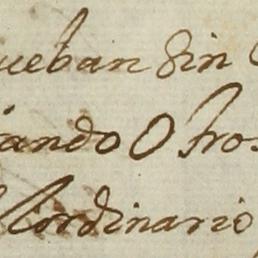 ueban sin
ando Otros
ordinario